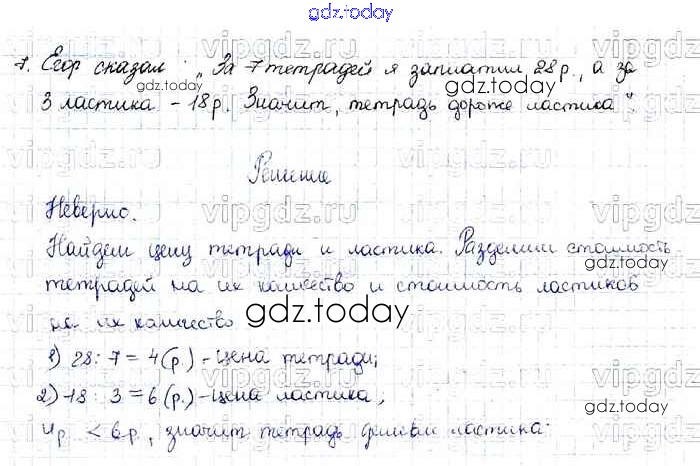 gdz.today
7. Егор сказал: „За 7 тетрадей я заплатил 28 р., а за
3 ластика – 18 р. Значит, тетрадь дороже ластика".
Решение
Неверно.
Найдем цену тетради и ластика. Разделим стоимость
тетрадей на их количество и стоимость ластиков
на их количество
1) 28 : 7 = 4 (р.) – цена тетради;
2) 18 : 3 = 6 (р.) – цена ластика,
4 р. < 6 р., значит тетрадь дешевле ластика.
vipgdz.ru
gdz.today